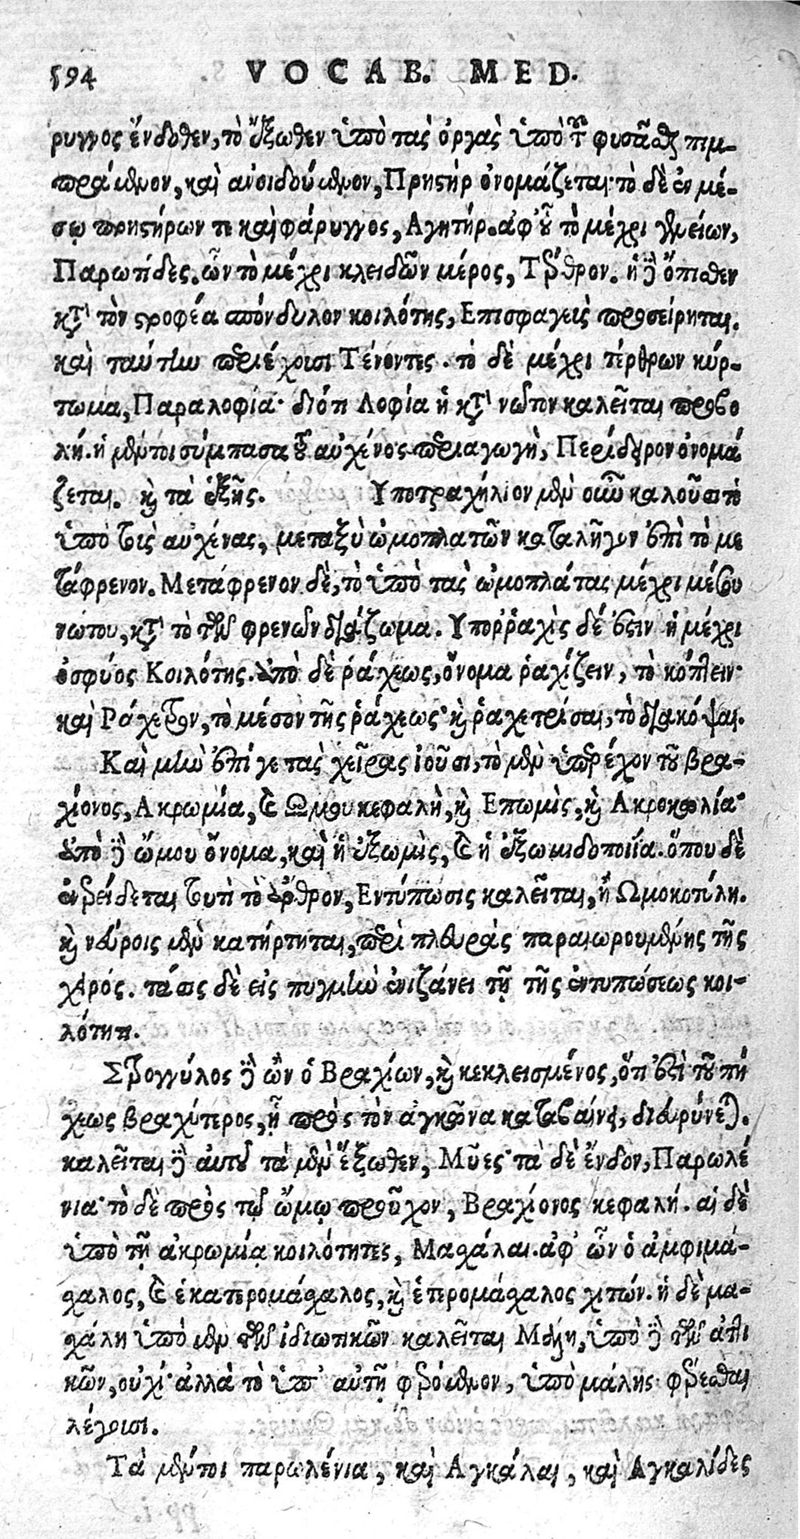 594 VOCAB. MED.
ρυγγος ἔνδοθεν, τὸ ἔξωθεν ὑπὸ τὰς ὀργὰς ὑπὸ τοῦ φυσᾶσθαι πιμ-
πράμενον, καὶ ἀνοιδούμενον, Πρηστὴρ ὀνομάζεται· τὸ δὲ ἐν μέ-
σῳ πρηστήρων τι καὶ φάρυγγος, Αγητήρ. ἀφ' οὗ τὸ μέχρι γενείων,
Παρωτίδες. ὧν τὸ μέχρι κλειδῶν μέρος, Τέρθρον. ἡ δὲ ὄπισθεν
κατὰ τὸν στροφέα σπόνδυλον κοιλότης, Επισφαγεὶς προσείρηται.
καὶ ταύτην περιέχουσι Τένοντες. τὸ δὲ μέχρι τέρθρων κύρ-
τωμα, Παραλοφία· διότι Λοφία ἡ κατὰ νώτου καλεῖται προβο
λή. ἡ μέντοι σύμπασα τοῦ αὐχένος περιαγωγὴ, Περίδυρον ὀνομά
ζεται. καὶ τὰ ἑξῆς. Υποτραχήλιον μὲν οὖν καλοῦσι τὸ
ὑπὸ τοὺς αὐχένας, μεταξὺ ὠμοπλατῶν καταλῆγον ἐπὶ τὸ με
τάφρενον. Μετάφρενον δὲ, τὸ ὑπὸ τὰς ὠμοπλάτας μέχρι μέσου
νώτου, κατὰ τὸ τῶν φρενῶν διάζωμα. Υπορῥαχὶς δέ ἐστιν ἡ μέχρι
ὀσφύος Κοιλότης. ἀπὸ δὲ ῥάχεως, ὄνομα ῥαχίζειν, τὸ κόπτειν·
καὶ Ράχετρον, τὸ μέσον τῆς ῥάχεως· καὶ ῥαχετρίσαι, τὸ διακόψαι.
Καὶ μὴν ἐπί γε τὰς χεῖρας ἰοῦσι, τὸ μὲν ὑπερέχον τοῦ βρα-
χίονος, Ακρωμία, καὶ Ωμου κεφαλὴ, καὶ Επωμὶς, καὶ Ακροκωλία·
ἀπὸ δὲ ὤμου ὄνομα, καὶ ἡ ἐξωμὶς, καὶ ἡ ἐξωμιδοποιΐα. ὅπου δὲ
ἐνερείδεται τουτὶ τὸ ἄρθρον, Εντύπωσις καλεῖται, ἢ Ωμοκοτύλη.
καὶ νεύροις μὲν κατήρτηται, περὶ πλευρὰς παραιωρουμένης τῆς
χειρός. τάσις δὲ εἰς πυγμὴν ἐνιζάνει τῇ τῆς ἐντυπώσεως κοι-
λότητι.
Στρογγύλος δὲ ὢν ὁ Βραχίων, καὶ κεκλεισμένος, ὅτι ἐστὶ τοῦ πή
χεως βραχύτερος, ᾗ πρὸς τὸν ἀγκῶνα καταβαίνει, διευρύνεται.
καλεῖται δὲ αὐτοῦ τὰ μὲν ἔξωθεν, Μῦες· τὰ δὲ ἔνδον, Παρωλέ
νια· τὸ δὲ πρὸς τῷ ὤμῳ προῦχον, Βραχίονος κεφαλή. αἱ δὲ
ὑπὸ τῇ ἀκρωμίᾳ κοιλότητες, Μαχάλαι. ἀφ' ὧν ὁ ἀμφιμά-
χαλος, καὶ ἑκατερομάχαλος, καὶ ἑτερομάχαλος χιτών. ἡ δὲ μα-
χάλη ὑπὸ μὲν τῶν ἰδιωτικῶν καλεῖται Μάλη, ὑπὸ δὲ τῶν ἀττι
κῶν, οὐχί· ἀλλὰ τὸ ὑπ' αὐτῇ φερόμενον, ὑπὸ μάλης φέρεσθαι
λέγουσι.
Τὰ μέντοι παρωλένια, καὶ Αγκάλαι, καὶ Αγκαλίδες